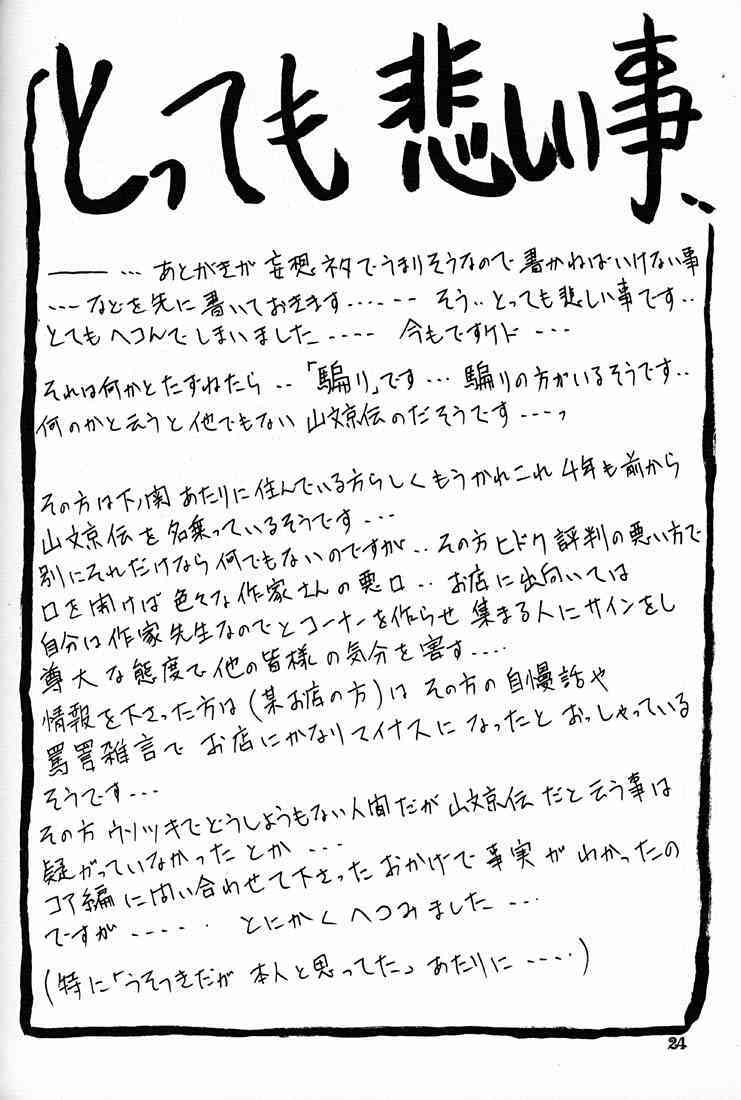 とっても悲しい事‥
―― … あとがきが妄想ネタでうまりそうなので書かねばいけない事
‥‥などを先に書いておきます‥‥‥ そう‥とっても悲しい事です‥
とてもヘコんでしまいました‥‥‥ 今もですケド‥‥
それは何かとたずねたら‥「騙り」です… 騙りの方がいるそうです‥
何のかと云うと他でもない 山文京伝のだそうです‥‥っ
その方は下ノ関あたりに住んでいる方らしくもうかれこれ4年も前から
山文京伝を名乗っているそうです‥‥
別にそれだけなら何でもないのですが‥その方ヒドク評判の悪い方で
口を開けば色々な作家さんの悪口‥ お店に出向いては
自分は作家先生なのでとコーナーを作らせ 集まる人にサインをし
尊大な態度で他の皆様の気分を害す‥‥
情報を下さった方は(某お店の方)は その方の自慢話や
罵詈雑言で お店にかなりマイナスに なったと おっしゃっている
そうです‥‥
その方 ウソツキでどうしようもない人間だが 山文京伝だと云う事は
疑がっていなかったとか‥‥
コア編に問い合わせて下さった おかげで事実が わかったの
ですが‥‥‥ とにかくへコみました‥‥
(特に「うそつきだが 本人と思ってた」あたりに‥‥)
24